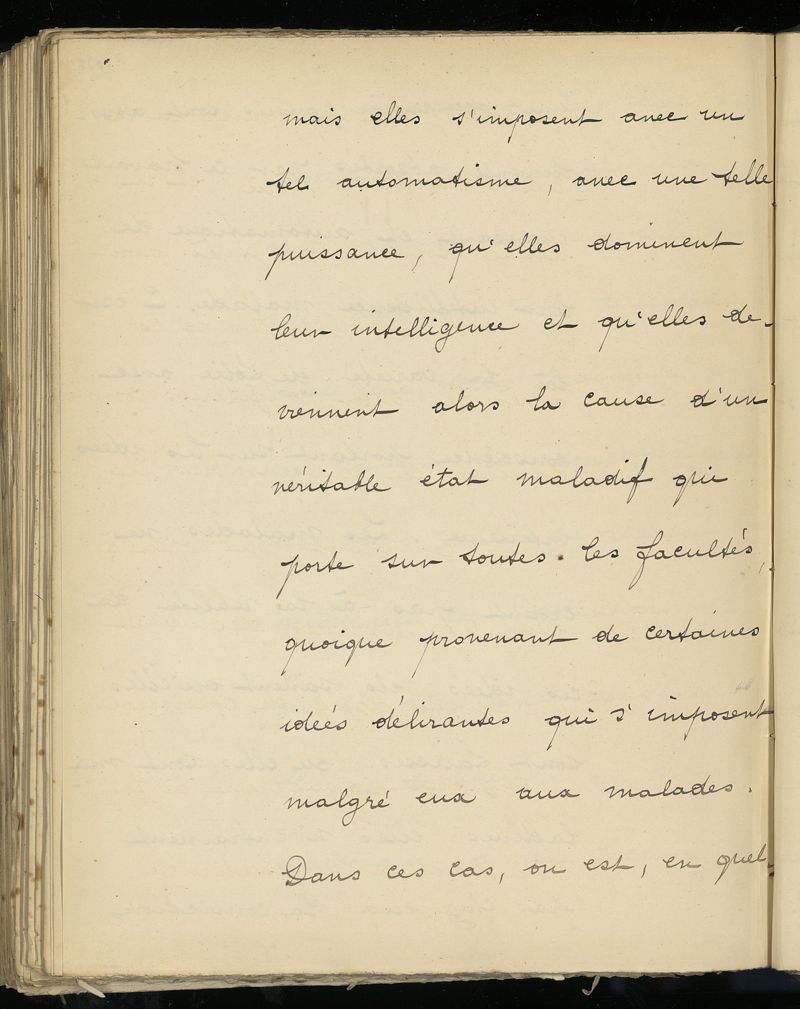 mais elles s'imposent avec un
tel automatisme, avec une telle
puissance, qu'elles dominent
leur intelligence et qu'elles de-
viennent alors la cause d'un
véritable état maladif qui
porte sur toutes les facultés,
quoique provenant de certaines
idées délirantes qui s'imposent
malgré eux aux malades.
Dans ces cas, on est, en quel-